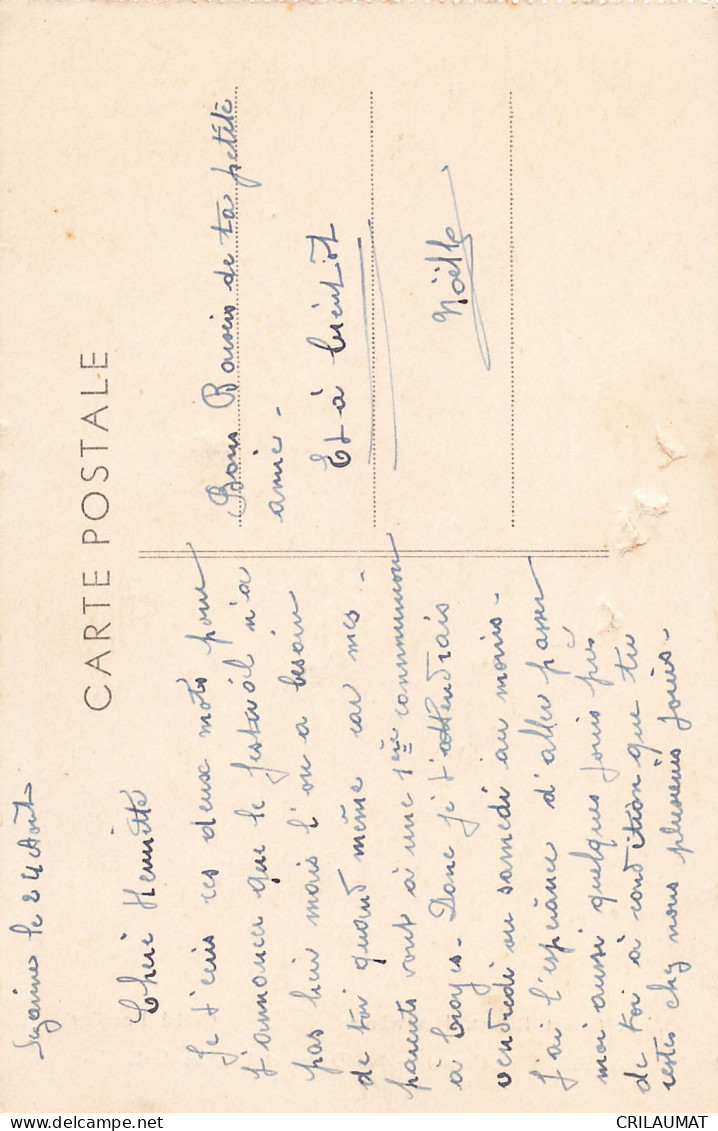 CARTE POSTALE
Sézanne le 24 Août
Chère Henriette
Je t'écris ces deux mots pour
t'annoncer que le festival n'a
pas lieu mais l'on a besoin
de toi quand même car mes
parents vont à une 1ère communion
à Troyes. Donc je t'attendrais
vendredi ou samedi au moins.
J'ai l'espérance d'aller passer
moi aussi quelques jours près
de toi à condition que tu
restes chez nous plusieurs jours.
Bons Baisers de ta petite
amie.
Et à bientôt
Noëlle
www.delcampe.net
CRILAUMAT